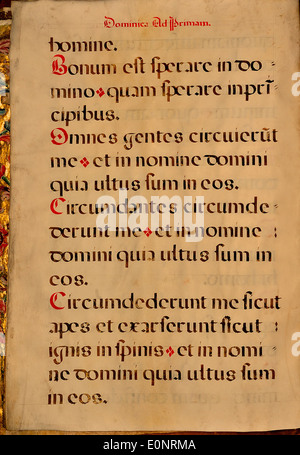 Dominica Ad Primam.
homine.
Bonum est sperare in do
mino quam sperare in prī
cipibus.
Omnes gentes circuierūt
me et in nomine domini
quia ultus sum in eos.
Circumdantes circumde
derunt me et in nomine
domini quia ultus sum in
eos.
Circumdederunt me sicut
apes et exarserunt sicut
ignis in spinis et in nomi
ne domini quia ultus sum
in eos.
alamy
alamy
Image ID: E0NRMA
www.alamy.com